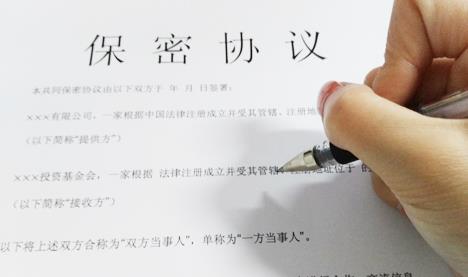 保密协议
本共同保密协议由以下双方于 年 月 日签署：
×××有限公司，一家根据中国法律注册成立并受其管辖、注册地
（以下简称“提供方”）
×××投资基金会，一家根据 法律注册成立并受其管辖、注册地址位于 的
（以下简称“接收方”）
以下将上述双方合称为“双方当事人”，单称为“一方当事人”。